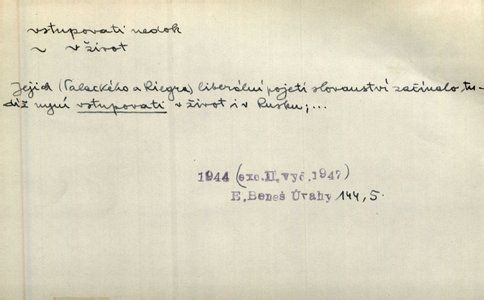 vstupovati nedok
~ v život
Jejich (Palackého a Riegra) liberální pojetí slovanství začínalo, tu-
díž nyní vstupovati v život i v Rusku; ...
1944 (exc. II. vyd. 1947)
E. Beneš Úvahy 144, 5.